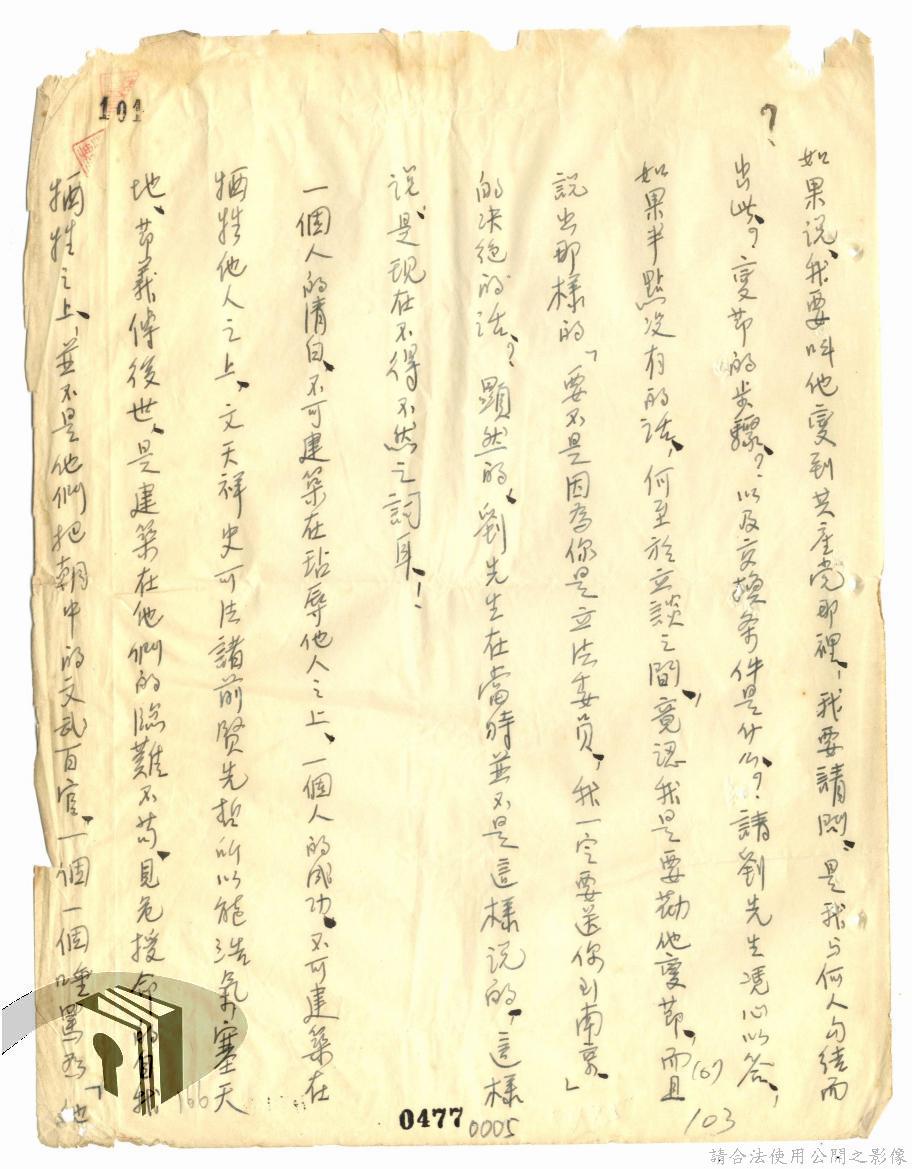 如果说、我要叫他变到共產党那裡，我要請問、是我与何人勾结而
出此？变节的步驟？以及交換条件是什么？請劉先生凭心以答，
如果半點没有的话，何至於立談之間，竟認我是要劝他变节，而且
說出那樣的「要不是因為你是立法委员，我一定要送你到南京」
的决绝的话？顯然的，劉先生在當時並不是這樣說的，這樣
说、是现在不得不然之詞耳！
一個人的清白、不可建築在玷辱他人之上、一個人的成功、不可建築在
牺牲他人之上、文天祥史可法諸前賢先哲所以能浩氣塞天
地、节義傳後世、是建築在他們的臨難不苟、見危授命的自我
牺牲之上、並不是他們把朝中的文武百官、一個一個唾罵為「他
?
101
(6)
103
166
0477
0005
請合法使用公開之影像